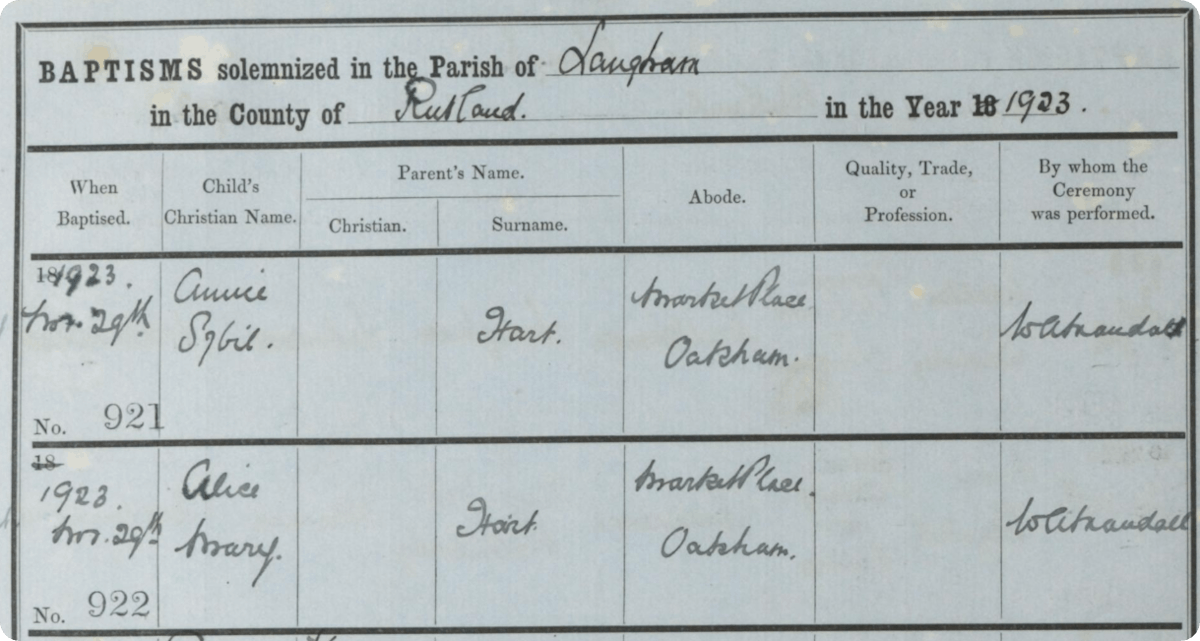 BAPTISMS solemnized in the Parish of Langham
in the County of Rutland. in the Year 18 1923.
When Baptised.
Child's Christian Name.
Parent's Name.
Christian.
Surname.
Abode.
Quality, Trade, or Profession.
By whom the Ceremony was performed.
18 1923.
Nov. 29th
Annie
Sybil.
Hart.
Market Place
Oakham.
No. 921
18
1923.
Nov. 29th
Alice
Mary.
Hart.
Market Place.
Oakham.
No. 922